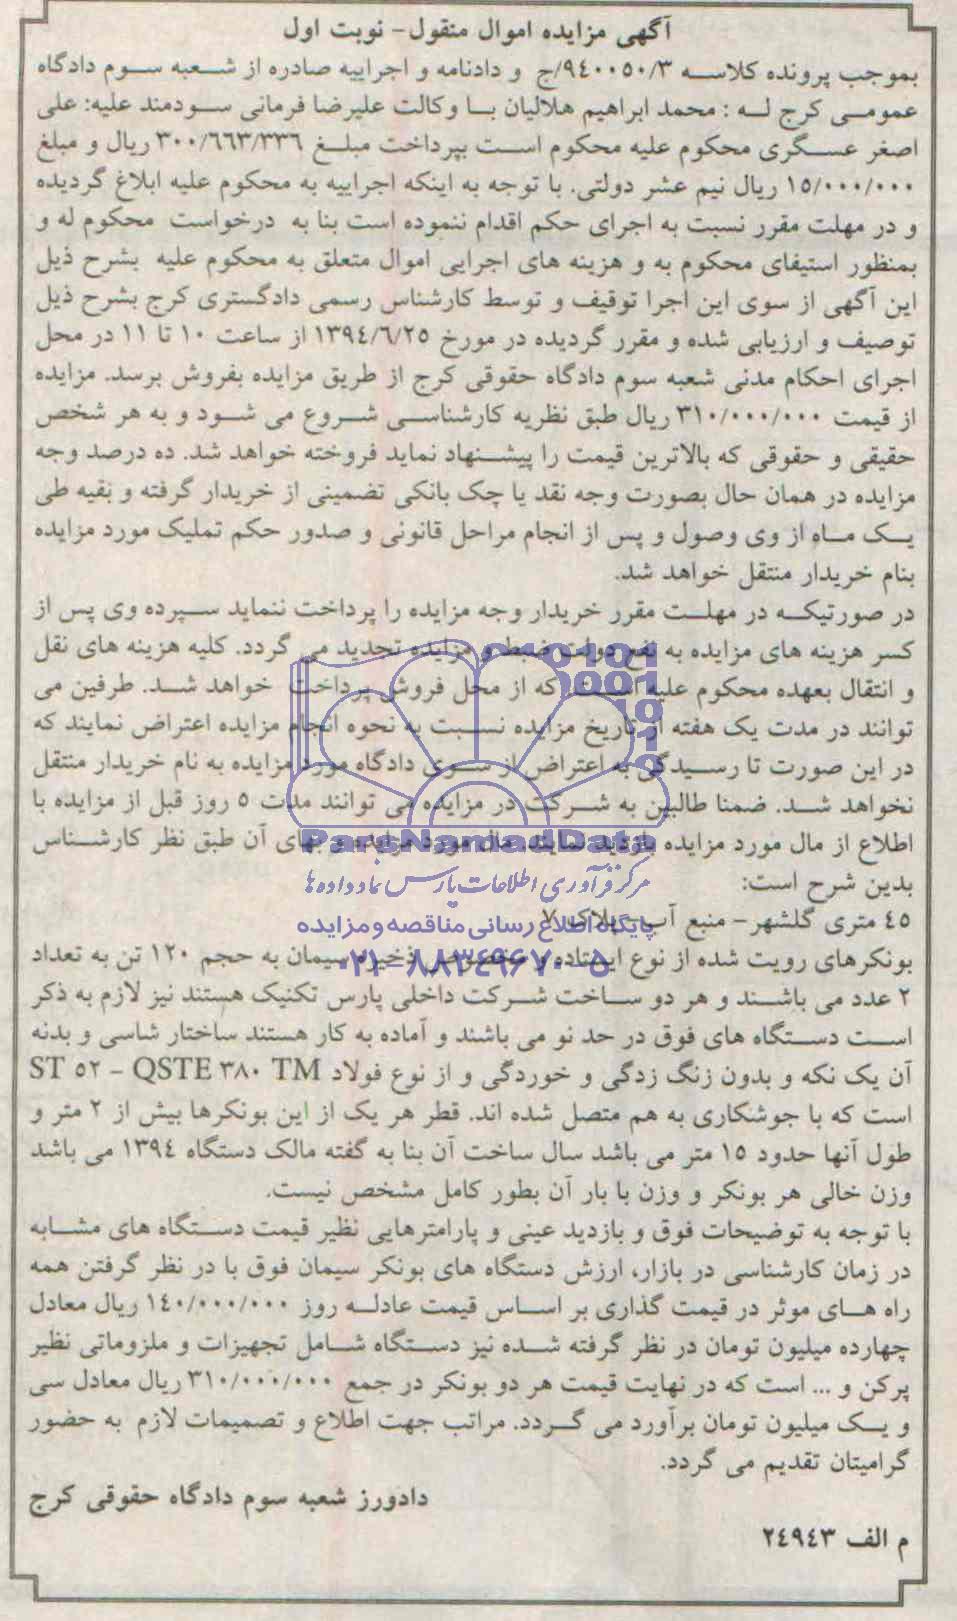 آگهی مزایده اموال منقول- نوبت اول
بموجب پرونده کلاسه ۹۴۰۰۵۰/۳/ج و دادنامه و اجراییه صادره از شعبه سوم دادگاه
عمومی کرج له : محمد ابراهیم هلالیان با وکالت علیرضا فرمانی سودمند علیه: علی
اصغر عسگری محکوم علیه محکوم است بپرداخت مبلغ ۳۰۰/۶۶۳/۳۳۶ ریال و مبلغ
۱۵/۰۰۰/۰۰۰ ریال نیم عشر دولتی. با توجه به اینکه اجراییه به محکوم علیه ابلاغ گردیده
و در مهلت مقرر نسبت به اجرای حکم اقدام ننموده است بنا به درخواست محکوم له و
بمنظور استیفای محکوم به و هزینه های اجرایی اموال متعلق به محکوم علیه بشرح ذیل
این آگهی از سوی این اجرا توقیف و توسط کارشناس رسمی دادگستری کرج بشرح ذیل
توصیف و ارزیابی شده و مقرر گردیده در مورخ ۱۳۹۴/۶/۲۵ از ساعت ۱۰ تا ۱۱ در محل
اجرای احکام مدنی شعبه سوم دادگاه حقوقی کرج از طریق مزایده بفروش برسد. مزایده
از قیمت ۳۱۰/۰۰۰/۰۰۰ ریال طبق نظریه کارشناسی شروع می شود و به هر شخص
حقیقی و حقوقی که بالاترین قیمت را پیشنهاد نماید فروخته خواهد شد. ده درصد وجه
مزایده در همان حال بصورت وجه نقد یا چک بانکی تضمینی از خریدار گرفته و بقیه طی
یک ماه از وی وصول و پس از انجام مراحل قانونی و صدور حکم تملیک مورد مزایده
بنام خریدار منتقل خواهد شد.
در صورتیکه در مهلت مقرر خریدار وجه مزایده را پرداخت ننماید سپرده وی پس از
کسر هزینه های مزایده به نفع دولت ضبط و مزایده تجدید می گردد. کلیه هزینه های نقل
و انتقال بعهده محکوم علیه است که از محل فروش پرداخت خواهد شد. طرفین می
توانند در مدت یک هفته از تاریخ مزایده نسبت به نحوه انجام مزایده اعتراض نمایند که
در این صورت تا رسیدگی به اعتراض از سوی دادگاه مورد مزایده به نام خریدار منتقل
نخواهد شد. ضمنا طالبین به شرکت در مزایده می توانند مدت ۵ روز قبل از مزایده با
اطلاع از مال مورد مزایده بازدید نمایند. مال مورد مزایده و بهای آن طبق نظر کارشناس
ParsNamadData
مرکز فرآوری اطلاعات پارس نماد داده ها
بدین شرح است:
۴۵ متری گلشهر- منبع آب- پلاک ۷
پایگاه اطلاع رسانی مناقصه و مزایده
بونکرهای رویت شده از نوع ایستاده و مخصوص ذخیره سیمان به حجم ۱۲۰ تن به تعداد
۰۲۱-۸۸۳۴۹۶۷۰-۵
۲ عدد می باشند و هر دو ساخت شرکت داخلی پارس تکنیک هستند نیز لازم به ذکر
است دستگاه های فوق در حد نو می باشند و آماده به کار هستند ساختار شاسی و بدنه
آن یک تکه و بدون زنگ زدگی و خوردگی و از نوع فولاد ST ۵۲ - QSTE ۳۸۰ TM
است که با جوشکاری به هم متصل شده اند. قطر هر یک از این بونکرها بیش از ۲ متر و
طول آنها حدود ۱۵ متر می باشد سال ساخت آن بنا به گفته مالک دستگاه ۱۳۹۴ می باشد
وزن خالی هر بونکر و وزن با بار آن بطور کامل مشخص نیست.
با توجه به توضیحات فوق و بازدید عینی و پارامترهایی نظیر قیمت دستگاه های مشابه
در زمان کارشناسی در بازار، ارزش دستگاه های بونکر سیمان فوق با در نظر گرفتن همه
راه های موثر در قیمت گذاری بر اساس قیمت عادله روز ۱۴۰/۰۰۰/۰۰۰ ریال معادل
چهارده میلیون تومان در نظر گرفته شده نیز دستگاه شامل تجهیزات و ملزوماتی نظیر
پرکن و ... است که در نهایت قیمت هر دو بونکر در جمع ۳۱۰/۰۰۰/۰۰۰ ریال معادل سی
و یک میلیون تومان برآورد می گردد. مراتب جهت اطلاع و تصمیمات لازم به حضور
گرامیتان تقدیم می گردد.
دادورز شعبه سوم دادگاه حقوقی کرج
م الف ۲۴۹۴۳